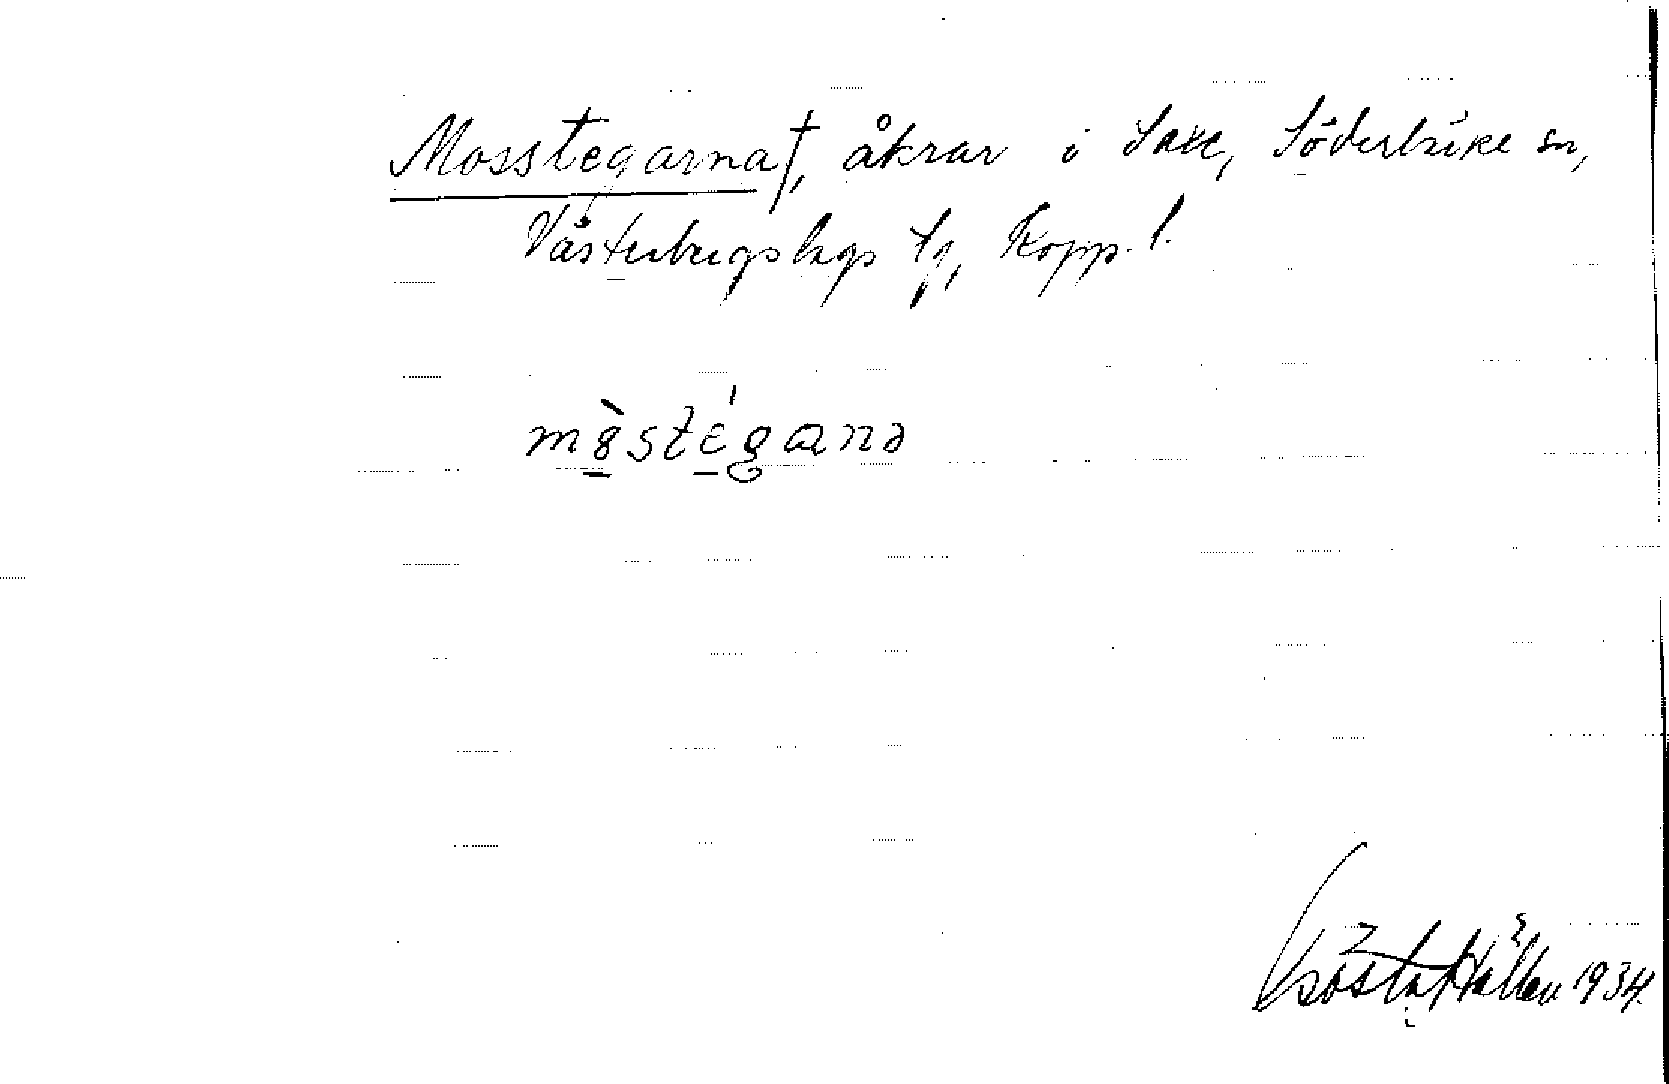 Mosstegarna†, åkrar i Saxe, Söderbärke sn,
Västerbergslags fg, Kopp. l.
mòstégana
Gösta Hallen 1934.